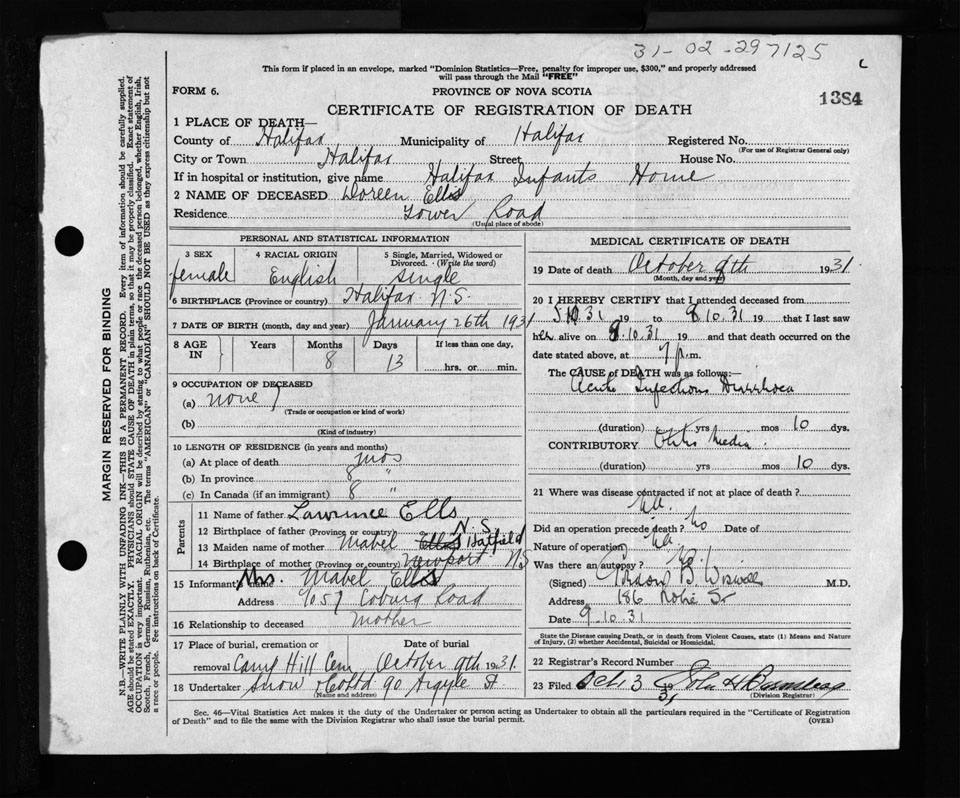 31-02-297125
c
This form if placed in an envelope, marked "Dominion Statistics—Free, penalty for improper use, $300," and properly addressed
will pass through the Mail "FREE"
FORM 6.
PROVINCE OF NOVA SCOTIA
1384
CERTIFICATE OF REGISTRATION OF DEATH
1 PLACE OF DEATH—
County of Halifax Municipality of Halifax Registered No.
(For use of Registrar General only)
City or Town Halifax Street House No.
If in hospital or institution, give name Halifax Infants Home
2 NAME OF DECEASED Doreen Ells
Residence Tower Road
(Usual place of abode)
PERSONAL AND STATISTICAL INFORMATION
3 SEX 4 RACIAL ORIGIN 5 Single, Married, Widowed or
Divorced. (Write the word)
female English single
6 BIRTHPLACE (Province or country) Halifax N.S.
7 DATE OF BIRTH (month, day and year) January 26th 1931
8 AGE IN Years Months Days If less than one day,
8 13 hrs. or min.
9 OCCUPATION OF DECEASED
(a) none
(Trade or occupation or kind of work)
(b)
(Kind of industry)
10 LENGTH OF RESIDENCE (in years and months)
(a) At place of death mos
(b) In province 8 "
(c) In Canada (if an immigrant) 8 "
Parents
11 Name of father Lawrence Ells
12 Birthplace of father (Province or country) N.S.
13 Maiden name of mother Mabel Ells Hatfield
14 Birthplace of mother (Province or country) Newport N.S
15 Informant Mrs. Mabel Ells
Address Coburg Road
16 Relationship to deceased Mother
17 Place of burial, cremation or Date of burial
removal Camp Hill Cem October 9th 1931.
18 Undertaker Snow & Co Ltd 90 Argyle St
(Name and address)
MEDICAL CERTIFICATE OF DEATH
19 Date of death October 9th 1931
(Month, day and year)
20 I HEREBY CERTIFY that I attended deceased from
5 10 31 19 to 8 10. 31 19 that I last saw
her alive on 8.10.31 19 and that death occurred on the
date stated above, at 7 p.m.
The CAUSE OF DEATH was as follows:—
Acute Infectious Diarrhoea
(duration) yrs mos 10 dys.
CONTRIBUTORY Otitis Media.
(duration) yrs mos 10 dys.
21 Where was disease contracted if not at place of death?
Did an operation precede death? No Date of
Nature of operation
Was there an autopsy?
(Signed) Gordon B. Wiswell M.D.
Address 186 Robie St
Date 9.10.31
State the Disease causing Death, or in death from Violent Causes, state (1) Means and Nature
of Injury, (2) whether Accidental, Suicidal or Homicidal.
22 Registrar's Record Number
23 Filed Oct 3 31 John H
(Division Registrar)
Sec. 46—Vital Statistics Act makes it the duty of the Undertaker or person acting as Undertaker to obtain all the particulars required in the "Certificate of Registration
of Death" and to file the same with the Division Registrar who shall issue the burial permit.
(OVER)
MARGIN RESERVED FOR BINDING
N.B.—WRITE PLAINLY WITH UNFADING INK—THIS IS A PERMANENT RECORD. Every item of information should be carefully supplied.
AGE should be stated EXACTLY. PHYSICIANS should STATE CAUSE OF DEATH in plain terms, so that it may be properly classified. Exact statement of
OCCUPATION is very important. RACIAL ORIGIN will be described by stating to what people or race the deceased person belonged, whether English, Irish,
Scotch, French, German, Russian, Ruthenian, etc. The terms "AMERICAN" or "CANADIAN" SHOULD NOT BE USED as they express citizenship but not
a race or people. See instructions on back of Certificate.